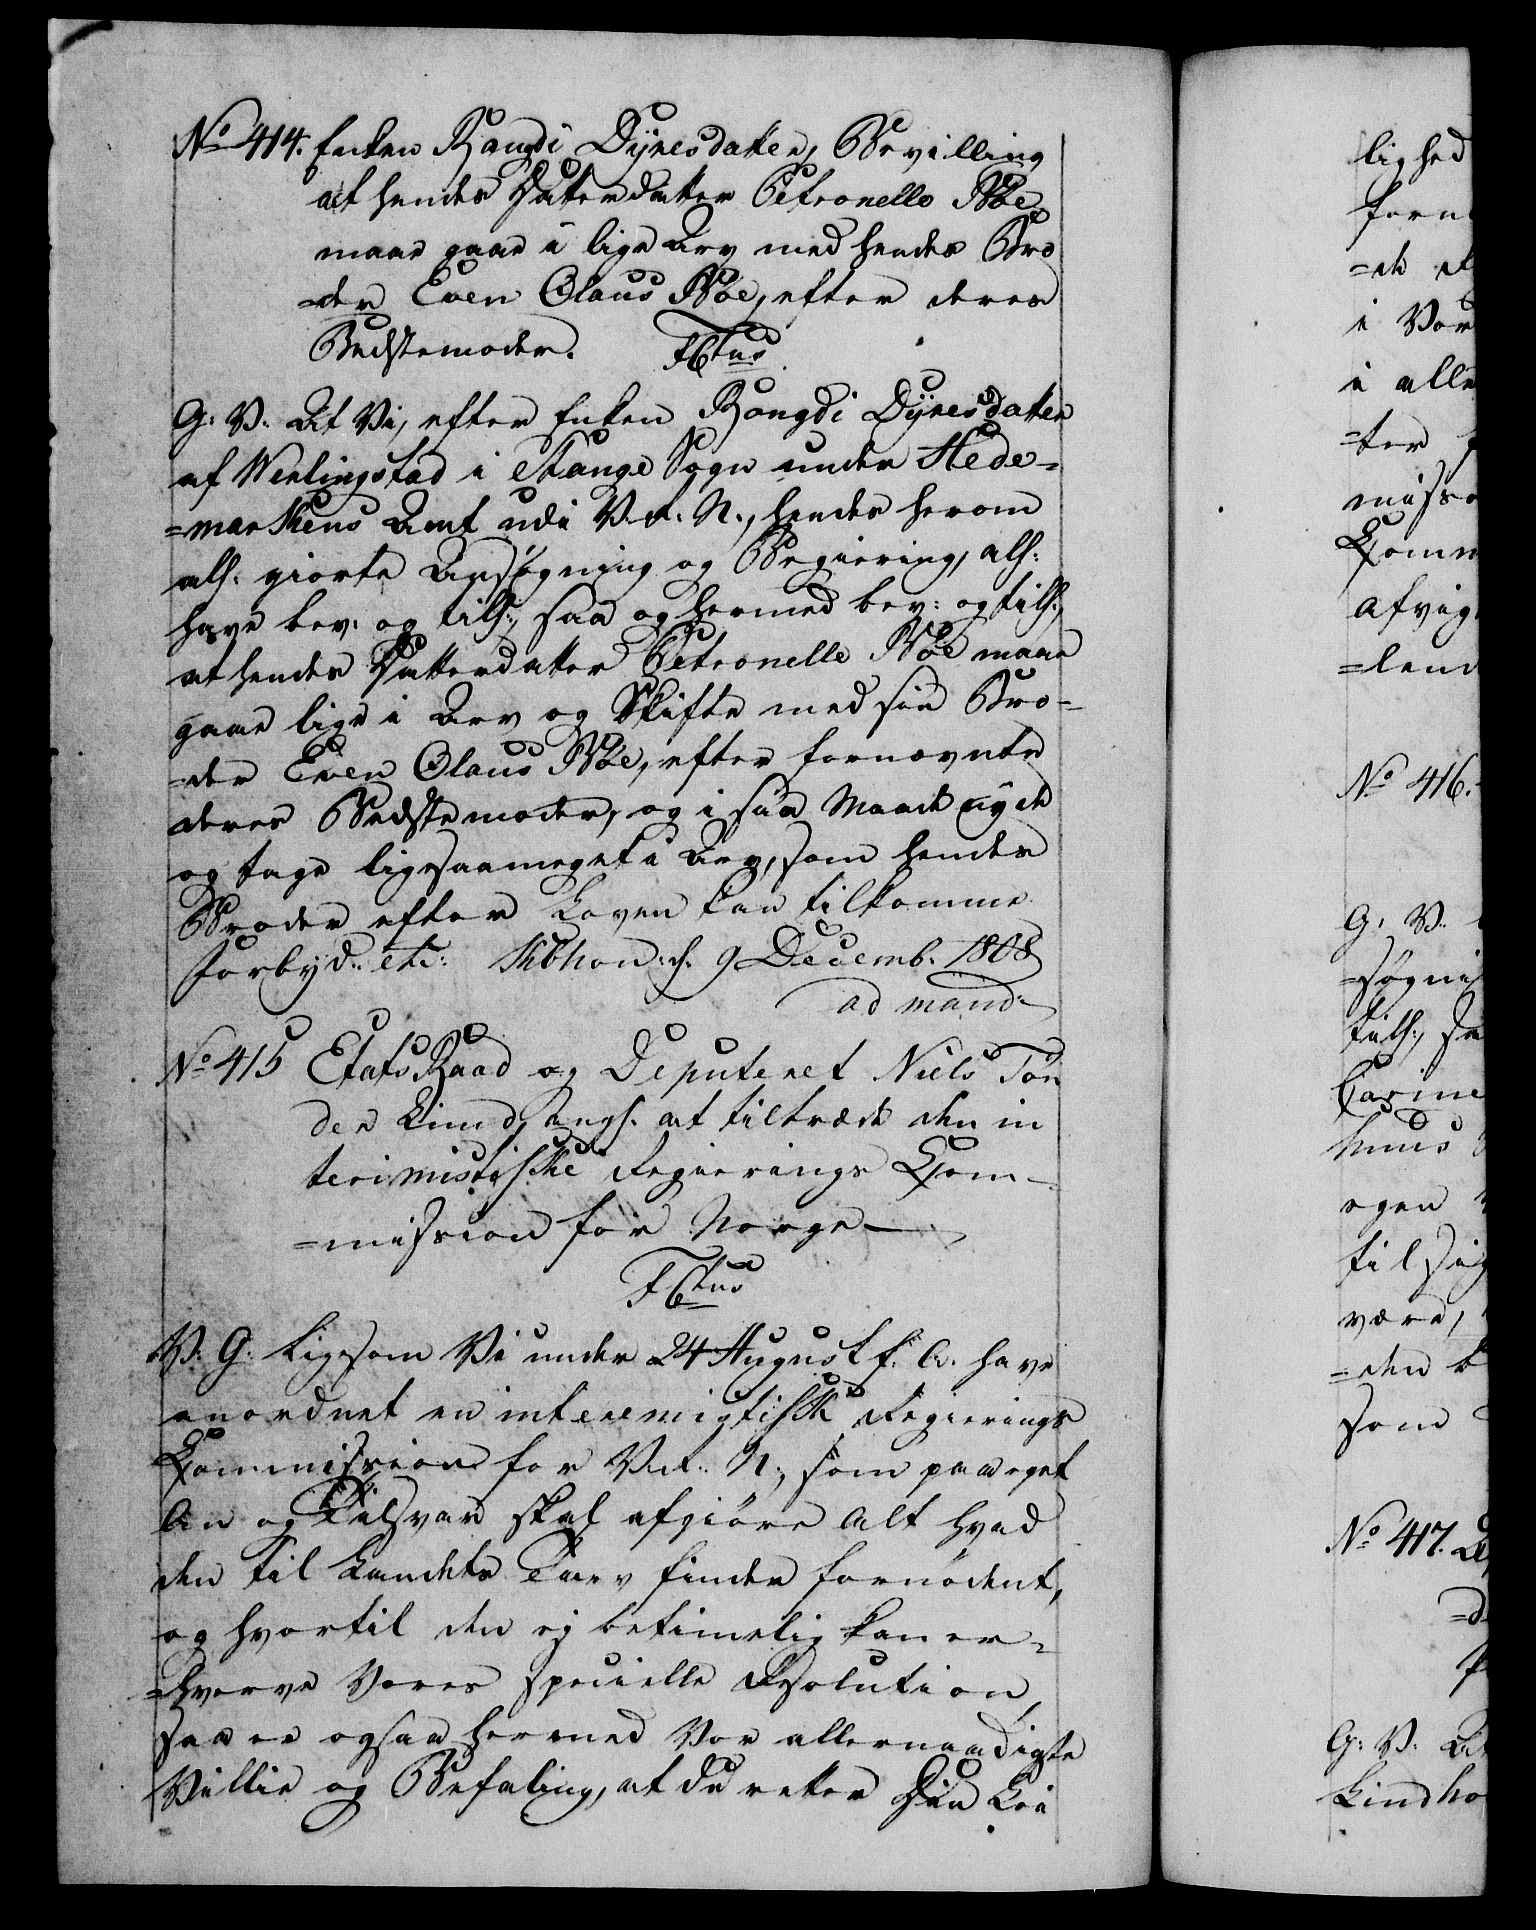 No 414. Enken Rangdi Dÿresdatter, Bevilling
at hendes Datterdatter Petronelle Boe
maae gaae i lige Arv med hendes Bro
=der Even Olaus Boe, efter deres
Bedstemoder. F 6tus
G: V: At Vi, efter Enken Rangdi Dÿresdatter
af Werlingstad i Stange Sogn under Hede=
=markens Amt udi V. R. N., hendes herom
all. giorte Ansøgning og Begiering, all:
have bev: og till:, saa og hermed bev: og till:,
at hendes Datterdatter Petronelle Boe maae
gaae lige i Arv og Skifte med sin Bro-
=der Even Olaus Boe, efter fornævnte
deres Bedstemoder, og i saa Maade nÿde
og tage ligesaameget i Arv, som hendes
Broder efter Loven kan tilkomme.
Forbyd: etc: Kbhavn: d. 9 Decemb. 1808
ad mand:
No 415 EtatsRaad og Deputeret Niels Tøn
der Lund, angl. at tiltræde den in
terimistiske Regierings Com-
=mission for Norge
F 6tus
V: G: Ligesom Vi under 24 August f. A. have
anordnet en interemistisk Regierings
Commission for V. R. N:, som paa eget
An og Tilsvar skal afgiøre Alt hvad
den til Landets Tarv finder fornødent,
og hvortil den ej betimelig kan er=
=hverve Vores specielle Resolution,
saa er ogsaa hermed Vor allernaadigste
Villie og Befaling, at du retter Din Lei
lighed
i Vor
i alle
=ter
misso
Comm
afvig
=lend
No 416.
G: V:
=søgni
till:, sa
Carine
huus
ogen
tilsig
være,
=den
som
No 417.
G: V: At
Lindho